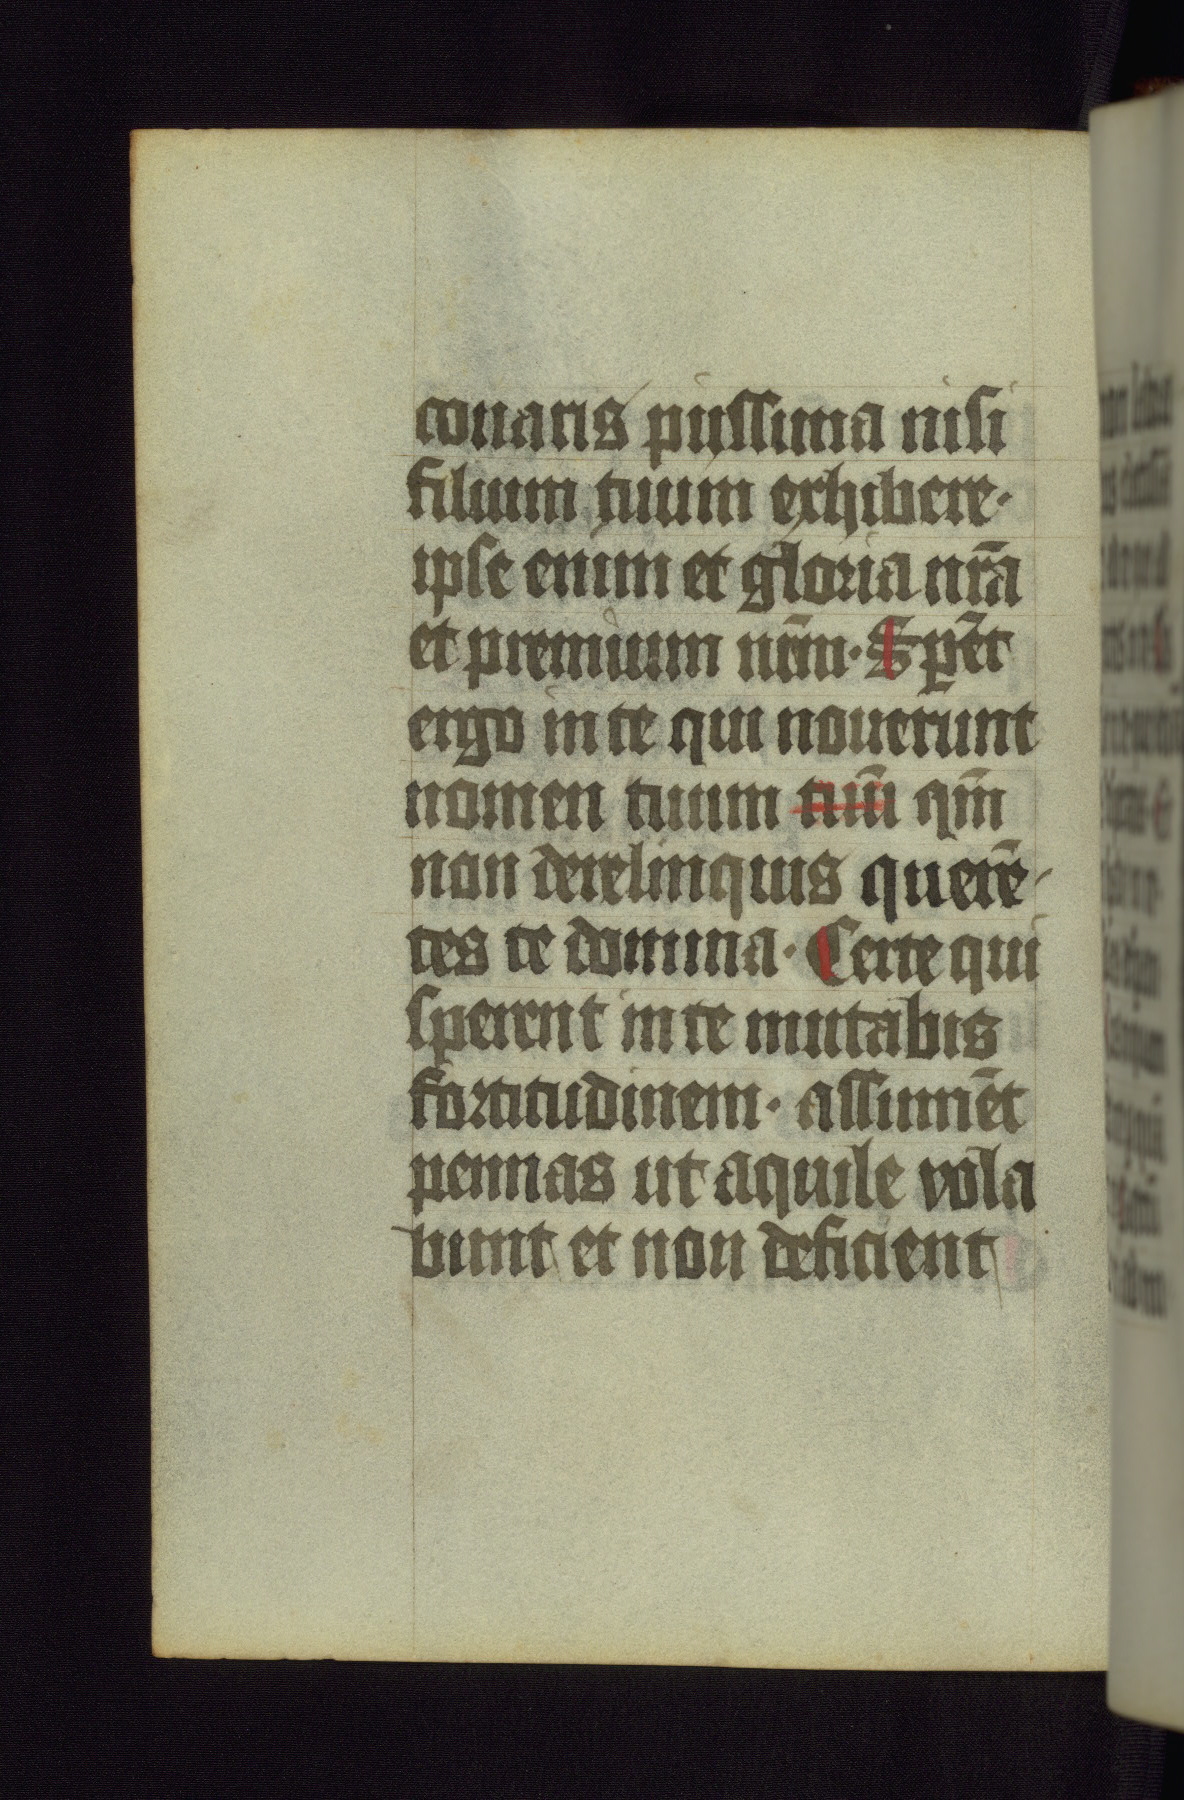 conaris pijssima nisi
filium tuum exhibere·
ipse enim et gloria nr̄a
et premium nr̄m· Sper̄et
ergo in te qui nouerunt
nomen tuum tuū qm̄
non derelinquis querē-
tes te domina· Certe qui
sperent in te mutabis
fortitudinem· assumēt
pennas ut aquile vola
bunt et non deficient